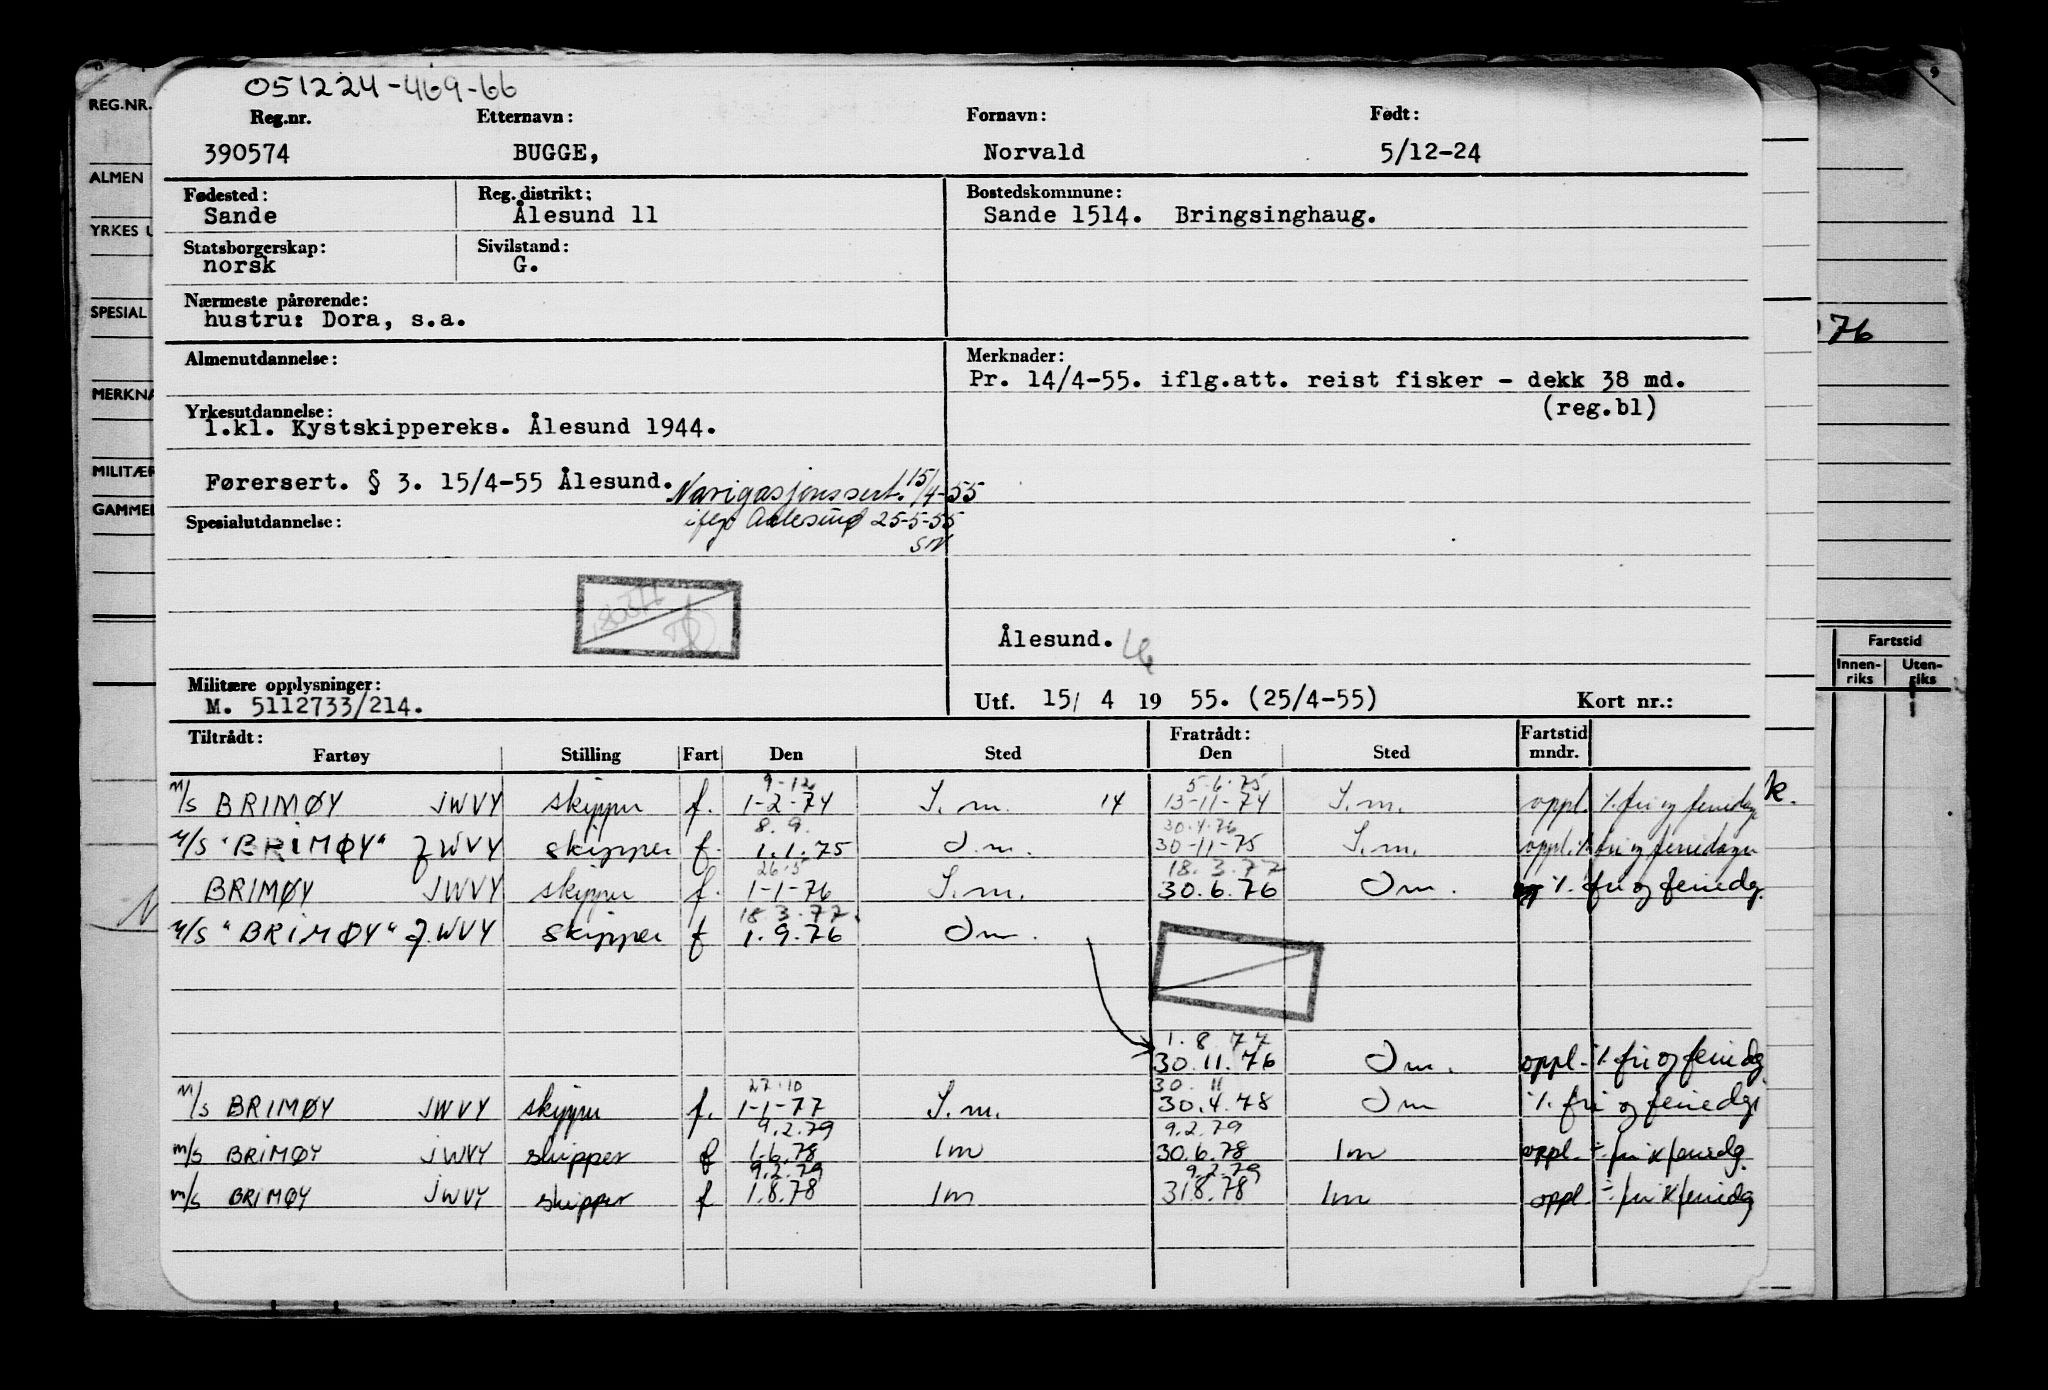 051224-469-66
REG.NR. Reg.nr. Etternavn: Fornavn: Født:
390574 BUGGE, Norvald 5/12-24
ALMEN Fødested: Reg. distrikt: Bostedskommune:
Sande Ålesund 11 Sande 1514. Bringsinghaug.
YRKES U Statsborgerskap: Sivilstand:
norsk G.
SPESIAL Nærmeste pårørende:
hustru: Dora, s.a.
76
Almenutdannelse: Merknader:
Pr. 14/4-55. iflg.att. reist fisker - dekk 38 md.
(reg.bl)
MERKNA Yrkesutdannelse:
1.kl. Kystskippereks. Ålesund 1944.
MILITÆR Førersert. § 3. 15/4-55 Ålesund. Navigasjonssert. 15/4-55
GAMMEL Spesialutdannelse: iflg Aalesund 25-5-55
SN
Ålesund.
Fartstid
Innen-riks Uten-riks
Militære opplysninger:
M. 5112733/214. Utf. 15/ 4 19 55. (25/4-55) Kort nr.:
Tiltrådt: Fratrådt: Fartstid mndr.
Fartøy Stilling Fart Den Sted Den Sted
9-12 5.6.75
m/s BRIMØY JWVY skipper f. 1-2-74 I.m. 14 13-11-74 I.m. oppl. %. fri og feriedage k.
8.9. 30.4.76
M/S "BRIMØY" JWVY skipper f. 1.1.75 Im. 30-11-75 I.m. oppl. %. fri og feriedager
26.5 18.3.77
BRIMØY JWVY skipper f. 1-1-76 I.m. 30.6.76 Im. %. fri og feriedg.
18.3.77.
M/S "BRIMØY" J.WVY skipper f 1.9.76 Im.
1.8.77
30.11.76 Im. oppl. %. fri og feriedg
27.10 30.11
m/s BRIMØY JWVY skipper f. 1-1-77 I.m. 30.4.78 Im %. fri og feriedgr
9.2.79 9.2.79
m/s BRIMØY JWVY skipper f 1.6.78 Im 30.6.78 Im oppl. ÷ fri x feriedg.
9.2.79 9.2.79
m/s BRIMØY JWVY skipper f 1.8.78 Im 31.8.78 Im oppl ÷ fri x feriedg